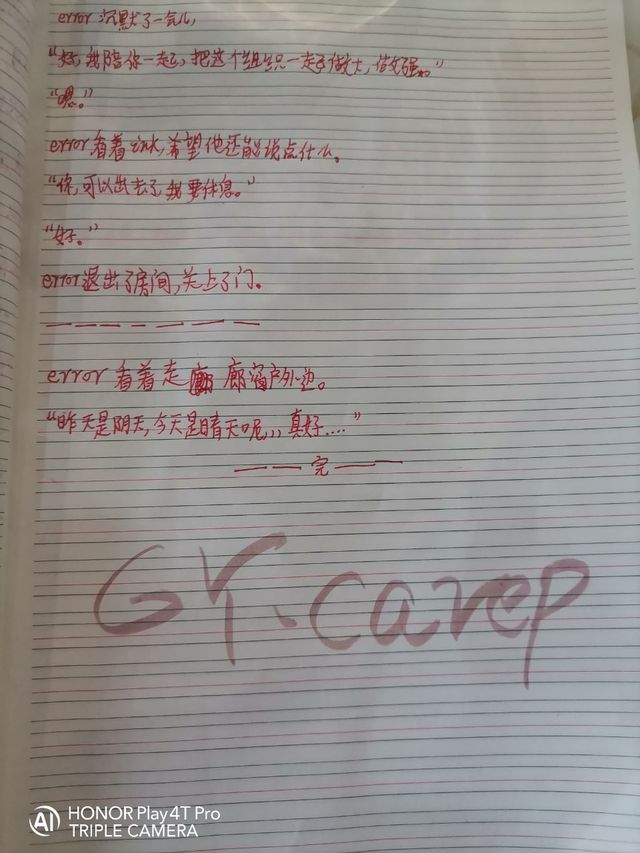 error沉默了一会儿,
"好,我陪你一起,把这个组织一起做大,做强。"
"嗯。"
error看着,希望他还能说点什么。
"你,可以出去了,我要休息。"
"好。"
error退出了房间,关上了门。
error看着走廊窗户外边。
"昨天是阴天,今天是晴天呢,,,真好...."
——完——
GY.carep
AI HONOR Play4T Pro
TRIPLE CAMERA